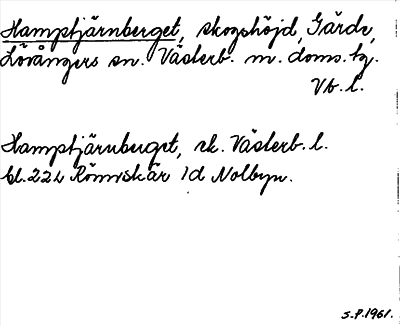 Hamptjärnberget, skogshöjd, Gärde,
Lövångers sn. Västerb. m. doms.tg.
Vb. l.
Hamptjärnberget, rk. Västerb. l.
bl. 22L Rönnskär 1d Nolbyn.
S.P. 1961.